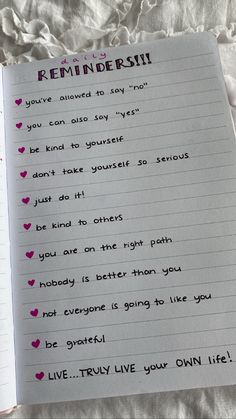 daily
REMINDERS!!!
you've allowed to say "no"
you can also say "yes"
be kind to yourself
don't take yourself so serious
just do it!
be kind to others
you are on the right path
nobody is better than you
not everyone is going to like you
be grateful
LIVE...TRULY LIVE your OWN life!